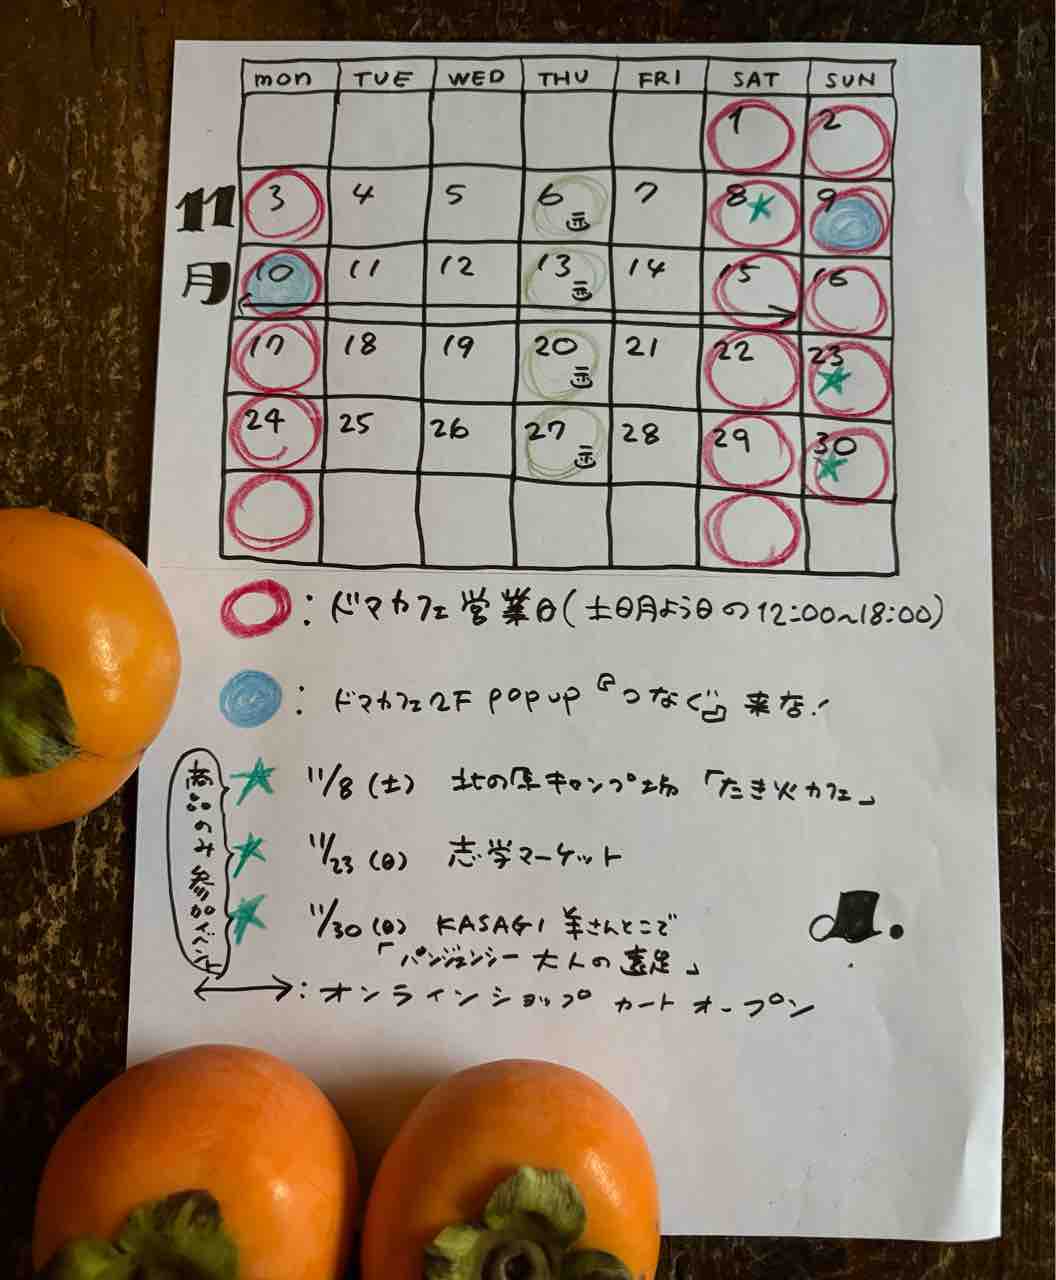 mon TUE WED THU FRI SAT SUN
1 2
11月
3 4 5 6 7 8 9
10 11 12 13 14 15 16
17 18 19 20 21 22 23
24 25 26 27 28 29 30
：ドマカフェ営業日(土日月よう日の12:00~18:00)
：ドマカフェ2F popup『つなぐ』来店！
商品のみ参加イベント
11/8(土) 北の原キャンプ場「たき火カフェ」
11/23(日) 志学マーケット
11/30(日) KASAGI 羊さんとこで
「パンジェンシー大人の遠足」
：オンラインショップ カートオープン